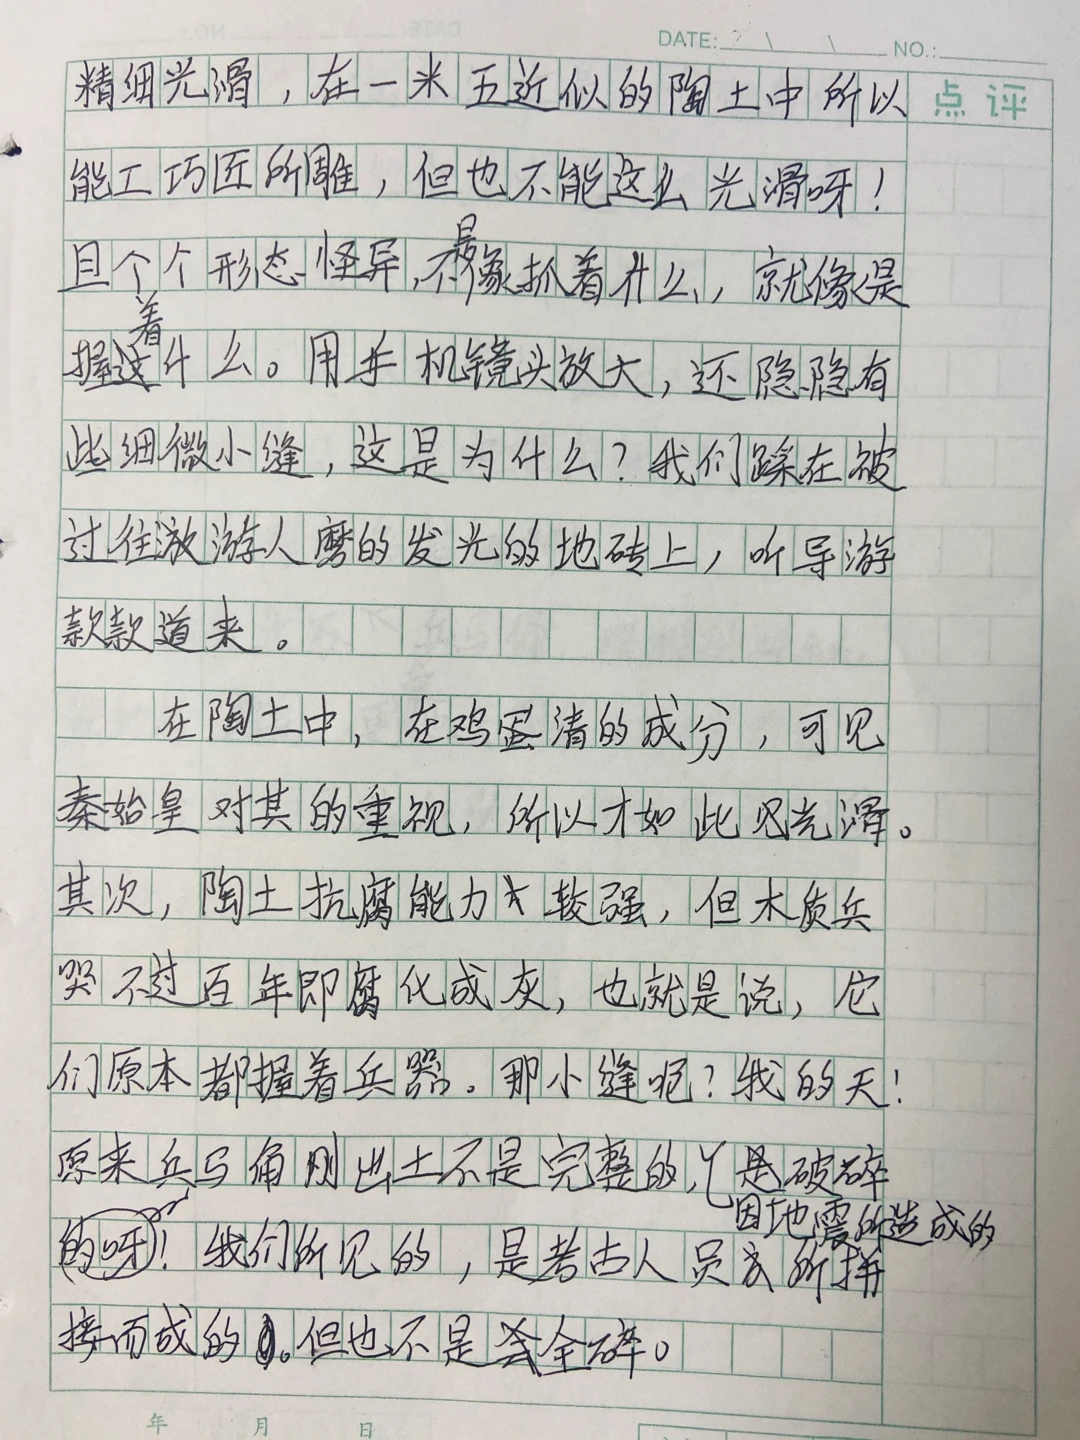 DATE: NO.:
点评
精细光滑，在一米五近似的陶土中所以
能工巧匠所雕，但也不能这么光滑呀！
且个个形态怪异，不是像抓着什么，就像是
握着什么。用手机镜头放大，还隐隐有
些细微小缝，这是为什么？我们踩在被
过往游人磨的发光的地砖上，听导游
款款道来。
在陶土中，在鸡蛋清的成分，可见
秦始皇对其的重视，所以才如此光滑。
其次，陶土抗腐能力较强，但木质兵
器不过百年即腐化成灰，也就是说，它
们原本都握着兵器。那小缝呢？我的天！
原来兵马俑刚出土不是完整的，是破碎
因地震所造成的
的呀！我们所见的，是考古人员所拼
接而成的。但也不是全碎。
年 月 日